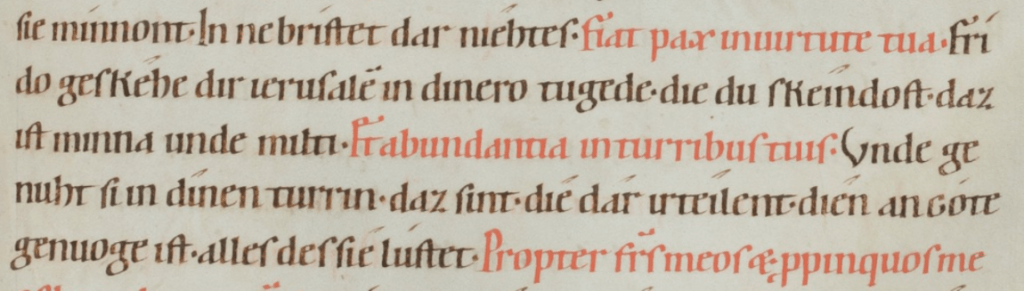 sie minnont· In nebristet dar niehtes· fiat pax inuirtute tua· fri
do geskéhe dir ierusalē in dinero tugede· die du skeindost· daz
ist minna unde milti· Et abundantia in turribus tuis· Vnde ge
nuht si in dinen turrin· daz sint· die dár irteilent· dien an góte
genuoge ist· alles des sie lústet· Propter fr̄s meos & ꝓpinquos me